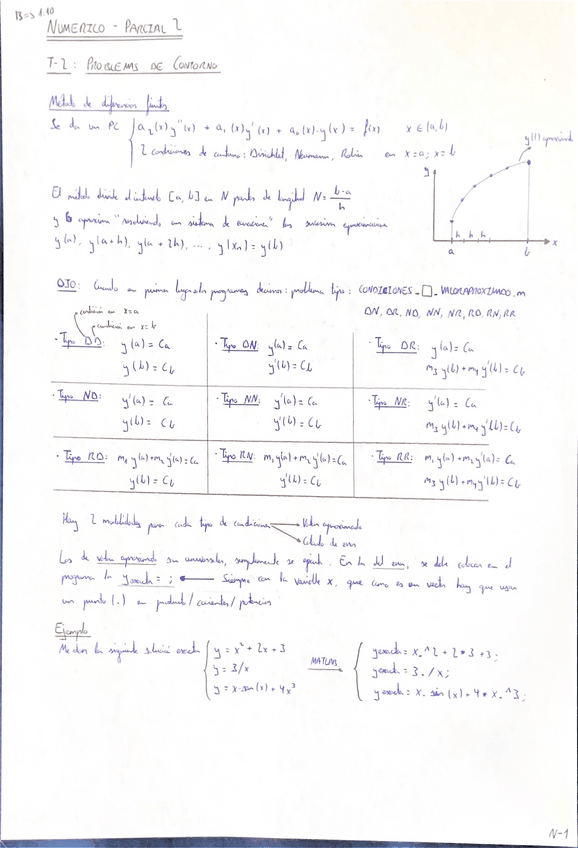 B=>1.10
NUMERICO - PARCIAL 2
T-2: PROBLEMAS DE CONTORNO
Método de diferencias finitas
Se da un PC { a₂(x)y''(x) + a₁(x)y'(x) + a₀(x)·y(x) = f(x) x ∈ (a,b)
2 condiciones de contorno: Dirichlet, Neumann, Robin en x=a; x=b
y(t) aproximada
y
h h h
a b x
El método divide el intervalo [a,b] en N partes de longitud N = b-a / h
y aproxima "resolviendo un sistema de ecuaciones" las sucesivas aproximaciones
y(a), y(a+h), y(a+2h), ..., y(xₙ) = y(b)
OJO: Cuando en primer lugar los programas decimos: problema tipo: CONDICIONES_□_VALORAPROXIMADO.m
DN, DR, ND, NN, NR, RD, RN, RR
condición en x=a
condición en x=b
· Tipo DD: y(a) = Ca
y(b) = Cb
· Tipo DN: y(a) = Ca
y'(b) = Cb
· Tipo DR: y(a) = Ca
m₃ y(b) + m₄ y'(b) = Cb
· Tipo ND: y'(a) = Ca
y(b) = Cb
· Tipo NN: y'(a) = Ca
y'(b) = Cb
· Tipo NR: y'(a) = Ca
m₃ y(b) + m₄ y'(b) = Cb
· Tipo RD: m₁ y(a) + m₂ y'(a) = Ca
y(b) = Cb
· Tipo RN: m₁ y(a) + m₂ y'(a) = Ca
y'(b) = Cb
· Tipo RR: m₁ y(a) + m₂ y'(a) = Ca
m₃ y(b) + m₄ y'(b) = Cb
Hay 2 modalidades para cada tipo de condiciones → Valor aproximado
→ Cálculo de error
Los de valor aproximado son universales, simplemente se ejecuta. En la del error, se debe colocar en el
programa la yexacta = ; ← Siempre con la variable x, que como es un vector hay que usar
un punto (.) en producto/cocientes/potencias
Ejemplo
Me dan la siguiente solución exacta { y = x² + 2x + 3
y = 3/x
y = x·sen(x) + 4x³
MATLAB
yexacta = x.^2 + 2*3 + 3;
yexacta = 3./x;
yexacta = x.sin(x) + 4*x.^3;
N-1